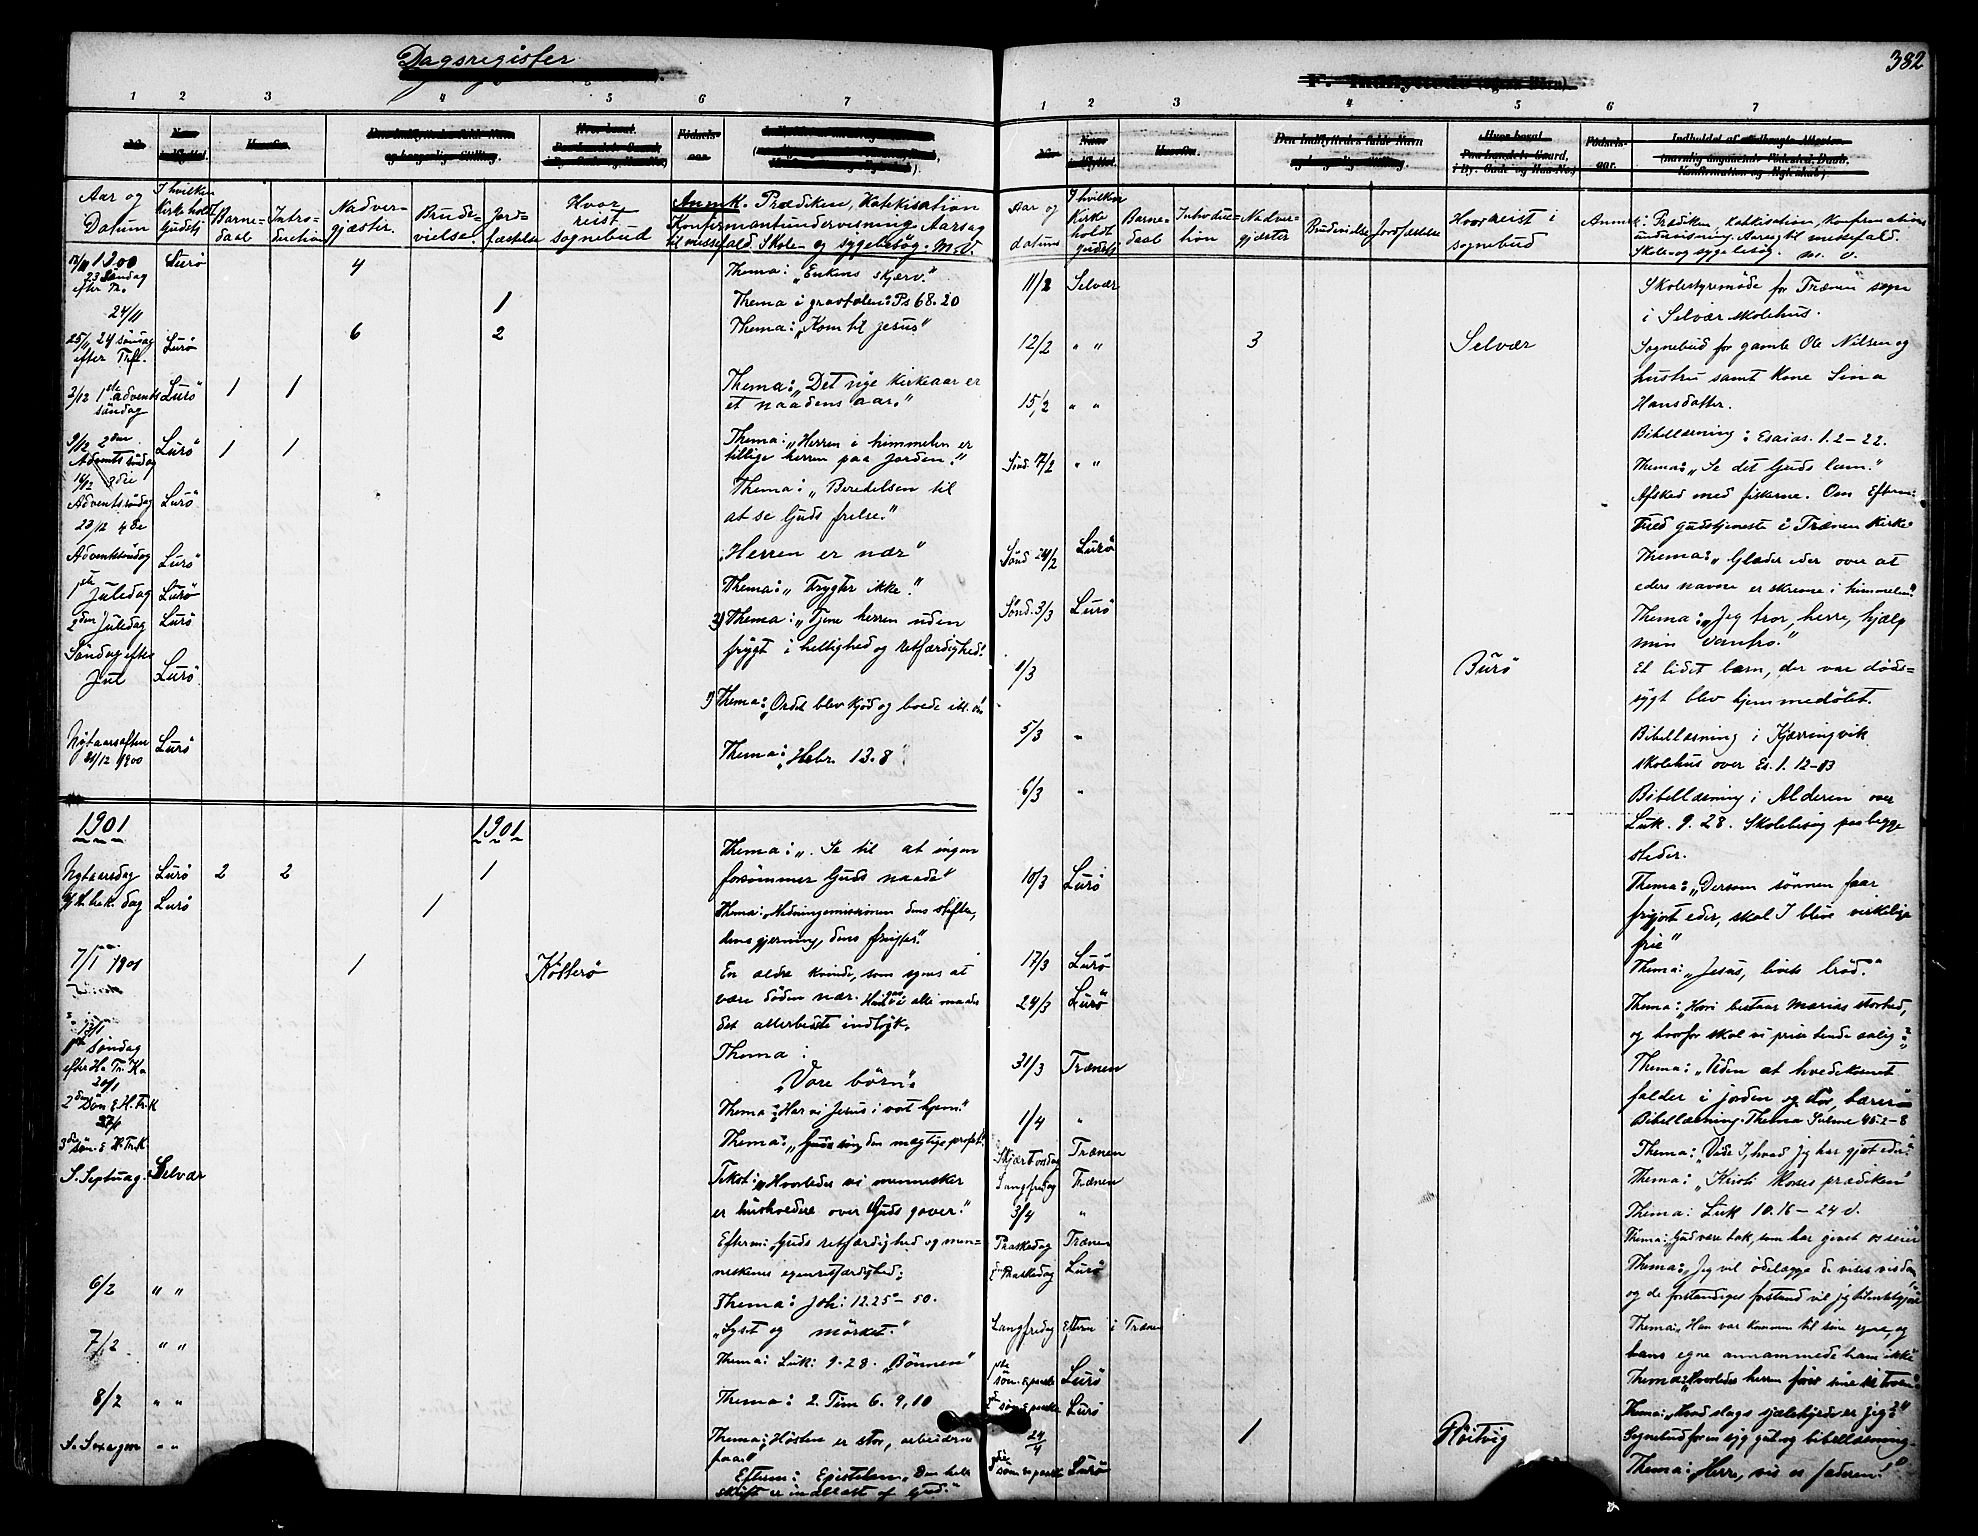 Dagsregister
1 2 3 4 5 6 7
Aar og Datum
I hvilken Kirke holdt Gudstj
Barnedaab
Introduction
Nadvergjæster
Brudevielse
Jordfæstelse
Hvor reist i sognebud
Anmk. Prædiken, Katekisation
Konfirmantundervisning, Aarsag
til messefald. Skole- og sygebesøg. m.v.
1900
23 Søndag efter Tr. Lurö 4 Thema: „Enkens skjærv."
24/11 1 Thema i gravtalen: Ps 68.20
25/11 24 söndag efter Trf. Lurö 6 2 Thema: „Kom til Jesus"
2/12 1ste advents söndag Lurö 1 1 Thema: „Det nye kirkeaar er
et naadens aar."
9/12 2den Advents söndag Lurö 1 1 Thema: „Herren i himmelen er
tillige herren paa jorden."
16/12 3die Adventsöndag Lurö Thema: „Beredelsen til
at se Guds frelse."
23/12 4de Adventsöndag Lurö „Herren er nær"
1ste Juledag Lurö Thema: „Frygter ikke."
2den Juledag Lurö 2) Thema: „Tjene herren uden
frygt i hellighed og retfærdighed."
Söndag efter Jul Lurö
1) Thema: „Ordet blev kjød og boede
Nytaarsaften 31/12 1900 Lurö Thema: „Hebr. 13.8
1901 1901
Nytaarsdag Lurö 2 2 1 Thema: „Se til at ingen
forsömmer Guds naade"
dag Lurö 1 Thema:
dens gjerning, dens frugter."
7/1 1901 1 En ældre kvinde, som synes at
være döden nær. alle maade
det allerbedste indtryk.
13/1
1ste söndag
efter H. Tr. K. Thema:
„Vore börn"
20/1
2den Sön E. H. Tr. K Thema: „Har vi Jesus i vort hjem."
27/1
3die sön. E. H. Tr. K Thema: „Guds sön den mægtige profet."
S. Septuag. Selvær Tekst: „Hvorledes vi mennesker
er husholdere over Guds gaver."
Efterm: „Guds retfærdighed og men-
neskenes egenretfærdighed;
6/2 „ „ Thema: Joh: 12.25 – 50.
7/2 „ „ „Lyset og mörket."
Thema: Luk: 9-28. „Bönnen"
8/2 „ „ Thema: 2. Tim 6. 9,10
„ „ Thema: „Hösten er stor, arbeiderne
faa"
Efterm: Epistelen „Den hele
skrift er indblæst af Gud."
382
1 2 3 4 5 6 7
Aar og datum
I hvilken Kirke holdt gudstj
Barnedaab
Introduction
Nadvergjæster
Brudevielse
Jordfæstelse
Hvor reist i sognebud
Anmrk: Prædiken, Katekisation, Konfirmations
undervisning. Aarsag til messefald.
Skole- og sygebesög. m. v.
11/2 Selvær Skolestyremöde for Trænen sogn
i Selvær skolehus.
12/2 „ „ 3 Selvær Sognebud for gamle Ole Nilsen og
hustru samt Kone Sina
Hansdatter.
15/2 „ „ Bibellæsning: Esaias. 1. 2 – 22.
Sönd. 17/2 „ „ Thema: „Se det Guds lam."
Afsked med fiskerne. Om Efterm:
gudstjeneste i Trænen Kirke.
Sönd 24/2 Lurö Thema: „Glæder eder over at
eders navne er skrevne i himmelen."
Sönd. 3/3 Lurö Thema: „Jeg tror, herre, hjælp
min vantro."
/3 Burö Et lidet barn, der var döds-
sygt blev hjemmedöbt.
5/3 „ Bibellæsning i Kjerringvik
skolehus over Es. 1. 12–13
6/3 „ Bibellæsning i Alderen over
Luk. 9. 28. Skolebesög paa begge
steder.
10/3 Lurö Thema: „Dersom sönnen faar
frigjort eder, skal I blive virkelige
frie"
17/3 Lurö Thema: „Jesus, livets bröd."
24/3 Lurö Thema: „Hvori bestaar Marias storhed,
og hvorfor skal vi prise hende salig?"
31/3 Trænen Thema: „Uden at hvedekornet
falder i jorden og dör, bærer
1/4 „ Bibellæsning. Thema Salme 46. 2-8
Skjærtorsdag Trænen Thema: „Vide I, hvad jeg har gjort eder"
Langfredag Trænen Thema: „Kristi Korses prædiken"
3/4 „ Thema: Luk 10. 16 – 24 v.
Paaskedag Trænen Thema: „Gud være tak, som har givet os seier
2den Paaskedag Lurö Thema: „Jeg vil ödelægge de vises visdom
og de forstandiges forstand vil jeg
Langfredag Efterm i Trænen Thema: „Han var kommen til sine egne, og
hans egne annammede ham ikke
1ste sön. E. paaske Lurö Thema: „Hvorledes herren förer sine til troen."
2den sön E. paaske Lurö Thema: „Hvad slags sjælehyrde er jeg?"
24/4 1 Röitvig Sognebud for en syg gut og bibellæsning.
3die sön E. paaske Lurö Thema: „Herre, vis os faderen."